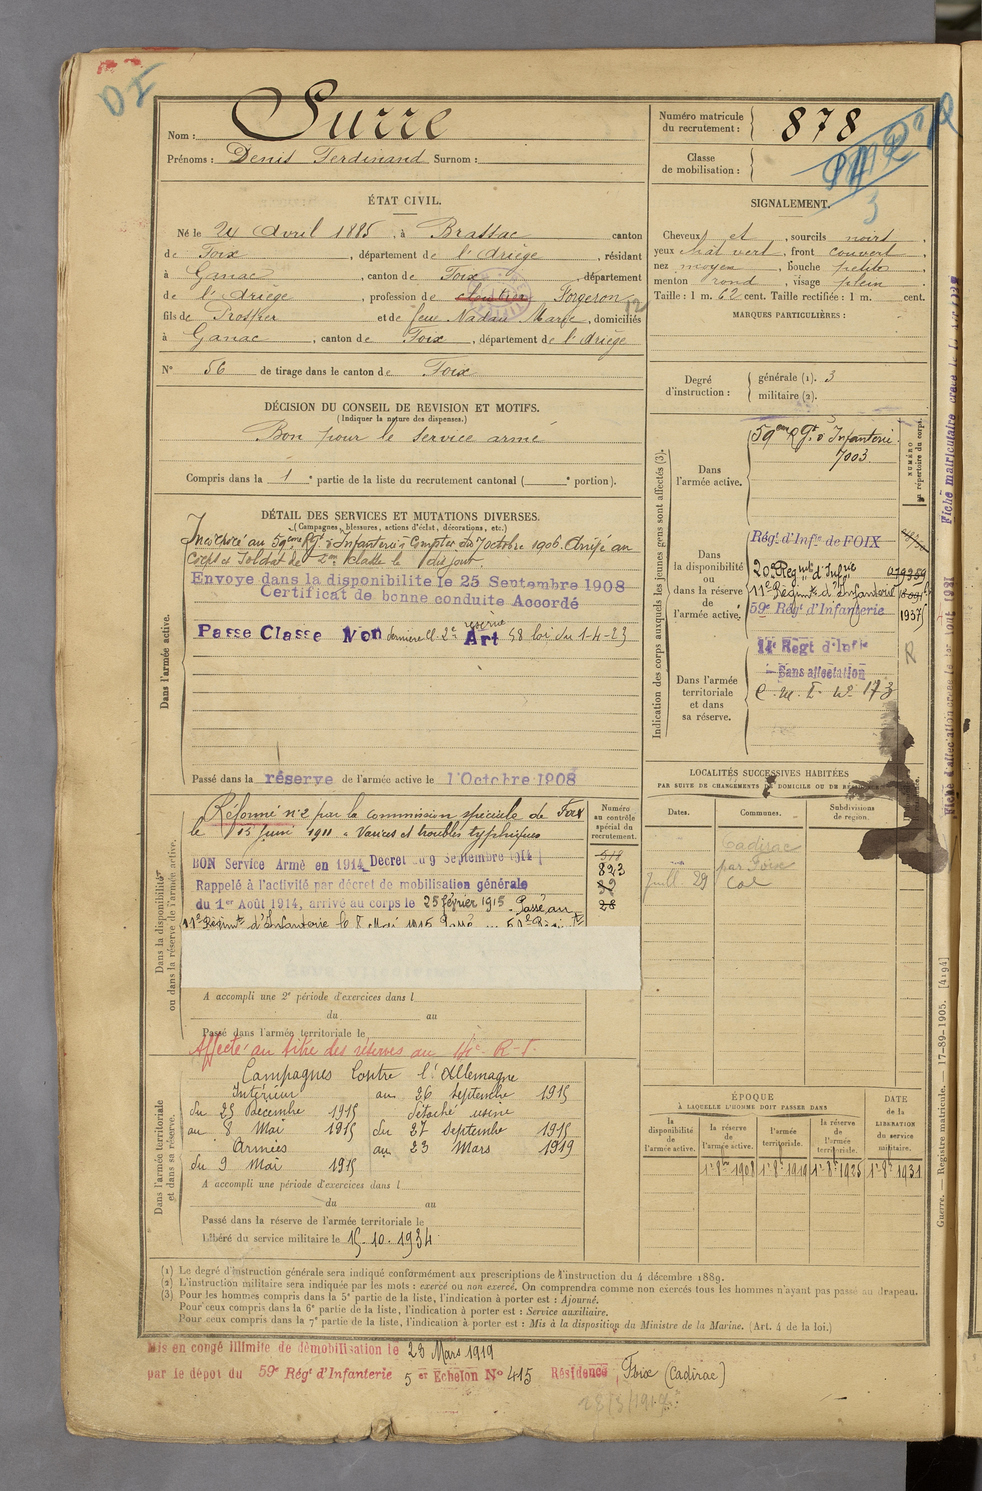 Nom : Surre
Prénoms : Denis Ferdinand Surnom :
Numéro matricule du recrutement : 878
Classe de mobilisation :
ÉTAT CIVIL.
Né le 24 Avril 1885, à Brassac canton
de Foix, département de l'Ariège, résidant
à Ganac, canton de Foix, département
de l'Ariège, profession de Forgeron
fils de Prosper et de feue Nadau Marie, domiciliés
à Ganac, canton de Foix, département de l'Ariège
N° 56 de tirage dans le canton de Foix
SIGNALEMENT.
Cheveux et, sourcils noirs,
yeux chât vert, front couvert
nez moyen, bouche petite,
menton rond, visage plein
Taille : 1 m. 62 cent. Taille rectifiée : 1 m. cent.
MARQUES PARTICULIÈRES :
Degré d'instruction : générale (1). 3
militaire (2).
DÉCISION DU CONSEIL DE REVISION ET MOTIFS.
(Indiquer la nature des dispenses.)
Bon pour le service armé
Compris dans la 1e partie de la liste du recrutement cantonal ( e portion).
DÉTAIL DES SERVICES ET MUTATIONS DIVERSES.
(Campagnes, blessures, actions d'éclat, décorations, etc.)
Incorporé au 59ème Rgt d'Infanterie à Compter du 7 octobre 1906. Arrivé au
Corps et Soldat de 2me classe le dit jour.
Envoyé dans la disponibilité le 25 Septembre 1908
Certificat de bonne conduite Accordé
Passé Classe Non dernière cl. 2e réserve Art 58 loi du 1-4-23
Dans l'armée active.
Passé dans la réserve de l'armée active le 1 Octobre 1908
Indication des corps auxquels les jeunes gens sont affectés (3).
NUMÉRO au répertoire du corps.
Dans l'armée active.
59ème Rgt d'Infanterie
7003
Dans la disponibilité ou dans la réserve de l'armée active.
Régt d'Infie de FOIX
20e Régiment d'Infrie
11e Régimt d'Infanterie
59e Régt d'Infanterie 1937
Dans l'armée territoriale et dans sa réserve.
14e Régt d'Infie
Sans affectation
C.M.I. N° 173
LOCALITÉS SUCCESSIVES HABITÉES
PAR SUITE DE CHANGEMENTS DE DOMICILE OU DE RÉSIDENCE
Dates. Communes. Subdivisions de région.
Cadirac
par Foix
Juill 29
Dans la disponibilité ou dans la réserve de l'armée active.
Numéro au contrôle spécial du recrutement.
Réformé n° 2 par la commission spéciale de Foix
le 15 Juin 1911. Varices et troubles typhiques
BON Service Armé en 1914 Décret du 9 Septembre 1914
Rappelé à l'activité par décret de mobilisation générale
du 1er Août 1914, arrivé au corps le 25 février 1915. Passé au
11e Régimt d'Infanterie le 8 Mai 1915 Passé au 59e Régimt
823
A accompli une 2e période d'exercices dans l
du au
Passé dans l'armée territoriale le
Affecté au titre des réserves au
Dans l'armée territoriale et dans sa réserve.
Campagnes Contre l'Allemagne
Intérieur
du 25 Décembre 1915
au 8 Mai 1915
Armées
du 9 Mai 1915
au 26 Septembre 1915
détaché usine
du 27 Septembre 1915
au 23 Mars 1919
A accompli une période d'exercices dans l
du au
Passé dans la réserve de l'armée territoriale le
Libéré du service militaire le 15.10.1934
ÉPOQUE
À LAQUELLE L'HOMME DOIT PASSER DANS
la disponibilité de l'armée active.
la réserve de l'armée active.
l'armée territoriale.
la réserve de l'armée territoriale.
DATE de la LIBÉRATION du service militaire.
1r 8bre 1908
1r 8r 1919
1r 8r 1925
1r 8r 1931
(1) Le degré d'instruction générale sera indiqué conformément aux prescriptions de l'instruction du 4 décembre 1889.
(2) L'instruction militaire sera indiquée par les mots : exercé ou non exercé. On comprendra comme non exercés tous les hommes n'ayant pas passé au drapeau.
(3) Pour les hommes compris dans la 5e partie de la liste, l'indication à porter est : Ajourné.
Pour ceux compris dans la 6e partie de la liste, l'indication à porter est : Service auxiliaire.
Pour ceux compris dans la 7e partie de la liste, l'indication à porter est : Mis à la disposition du Ministre de la Marine. (Art. 4 de la loi.)
Mis en congé illimité de démobilisation le 23 Mars 1919
par le dépôt du 59e Régt d'Infanterie 5e Echelon N° 415 Résidence Foix (Cadirac)
Guerre. — Registre matricule. — 17-89-1905. [4194]